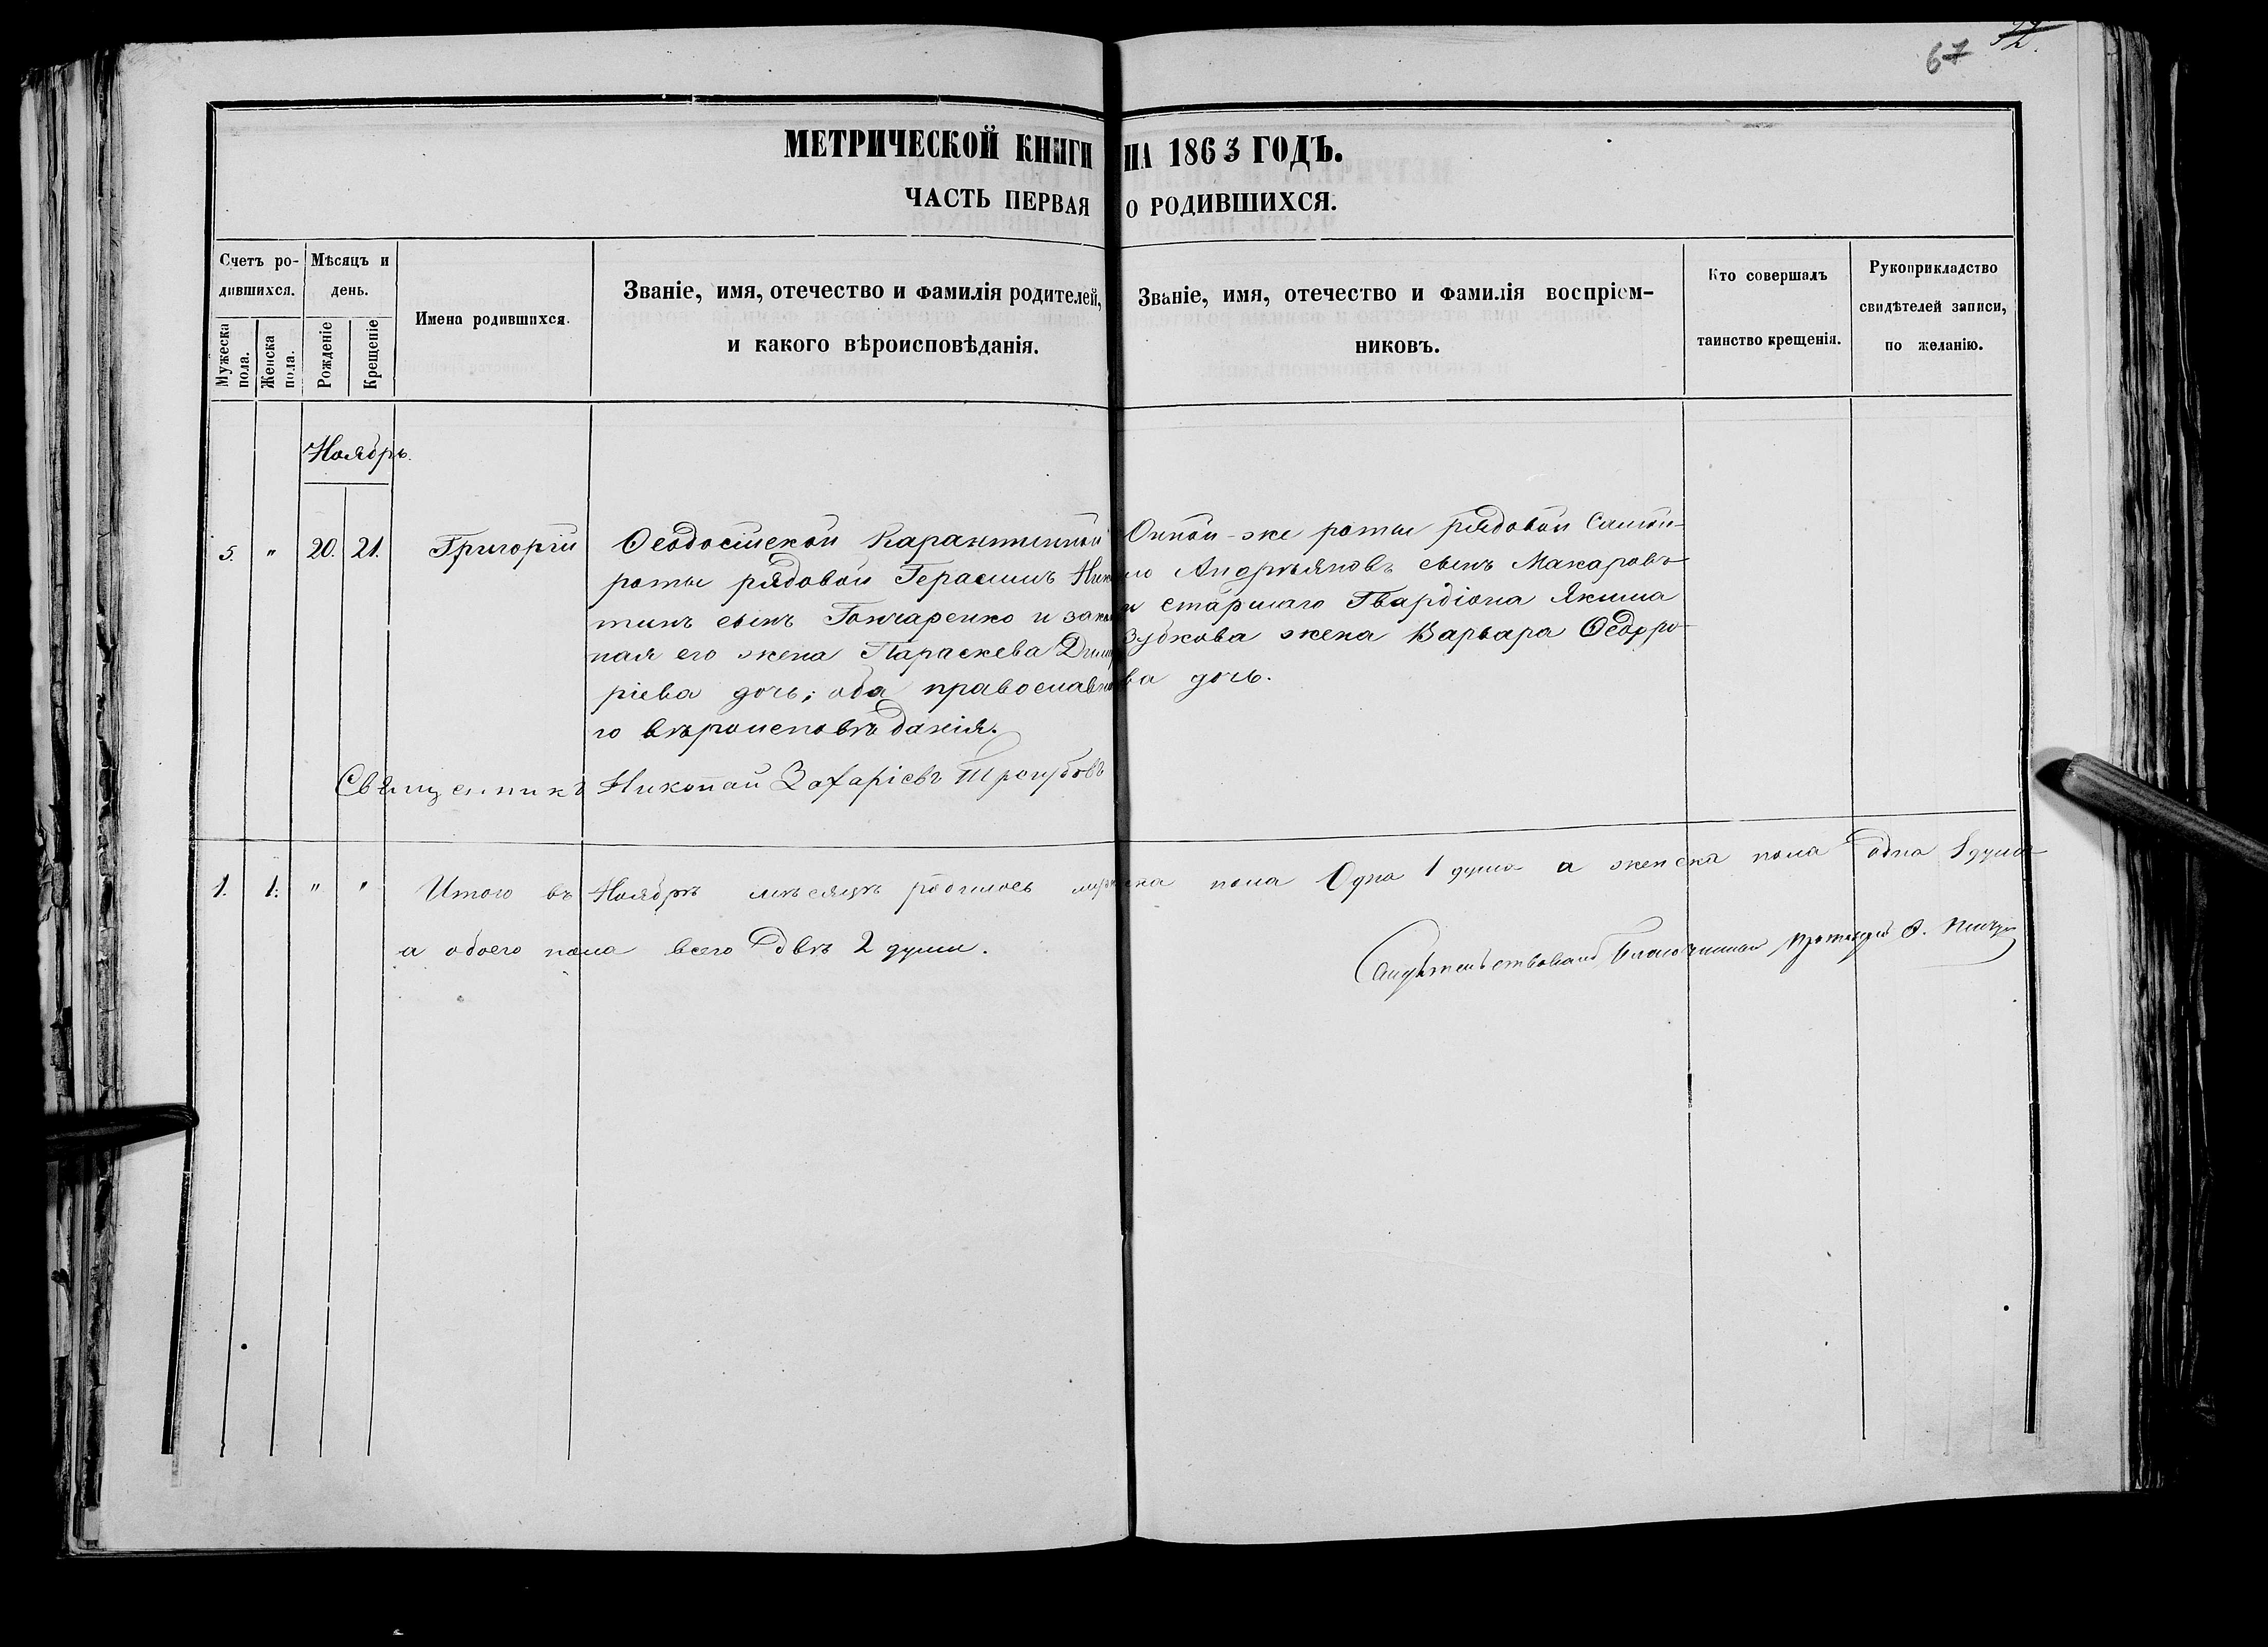 67 32.
МЕТРИЧЕСКОЙ КНИГИ НА 1863 ГОДЪ.
ЧАСТЬ ПЕРВАЯ О РОДИВШИХСЯ.
Счетъ ро-
дившихся.
Мужеска
пола.
Женска
пола.
Мѣсяцъ и
день.
Рожденіе
Крещеніе
Имена родившихся.
Званіе, имя, отечество и фамилія родителей,
и какого вѣроисповѣданія.
Званіе, имя, отечество и фамилія воспріем-
никовъ.
Кто совершалъ
таинство крещенія.
Рукоприкладство
свидѣтелей записи,
по желанію.
Ноябрь.
5. " 20. 21. Григорій
Ѳеодосійской Карантинной
роты рядовой Герасимъ Ники
тинъ сынъ Гончаренко и закон
ная его жена Параскева Димит
ріева дочь; оба православна
го вѣроисповѣданія.
Оной-же роты рядовой Самой-
ло Андреяновъ сынъ Макаровъ
и старшаго Гвардіона Якима
Зубкова жена Варвара Ѳедоро-
ва дочь.
Священникъ Николай Захаріевъ
1. 1. " " Итого въ Ноябрѣ мѣсяцѣ родилось мужеска пола Одна 1 душа а женска пола одна 1 душа
а обоего пола всего двѣ 2 души.
Свидѣтельствовалъ Благочинный Протоіерей